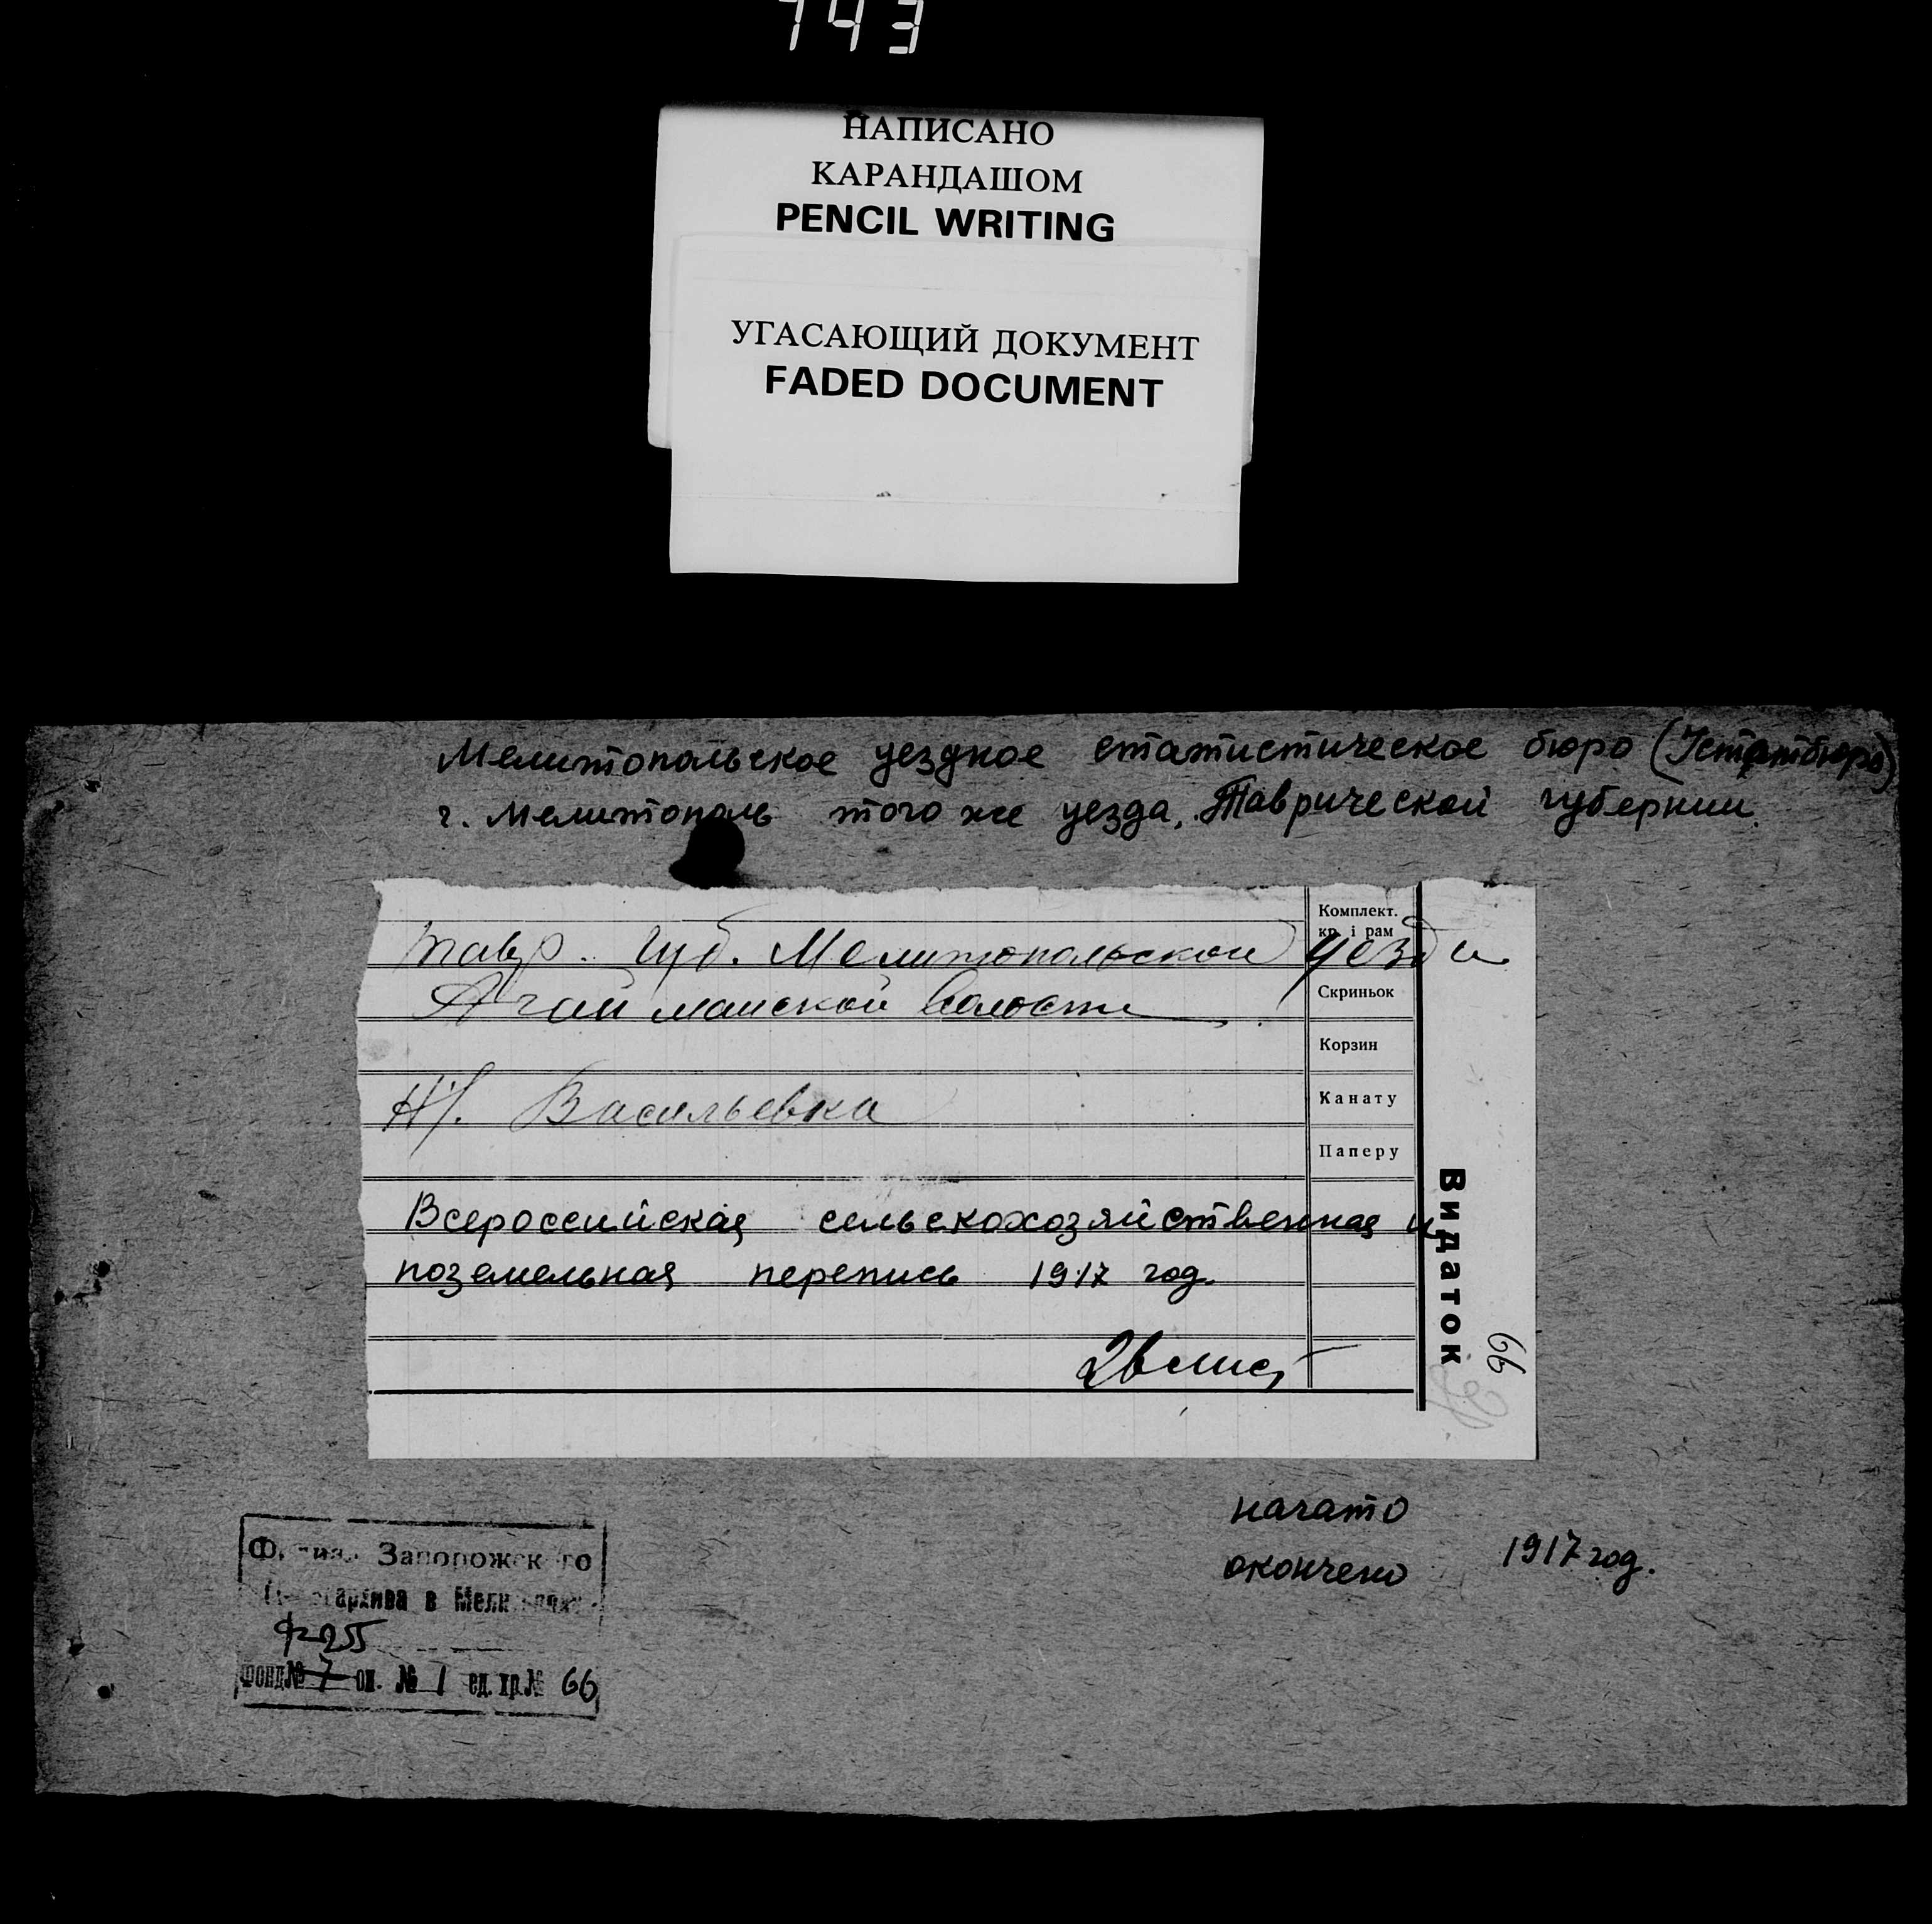 743
НАПИСАНО
КАРАНДАШОМ
PENCIL WRITING
УГАСАЮЩИЙ ДОКУМЕНТ
FADED DOCUMENT
Мелитопольское уездное статистическое бюро (Устатбюро)
г. Мелитополь того же уезда, Таврической губернии.
Тавр. Губ. Мелитопольской уезда
Агайманской Волости
Н/. Васильевка
Всероссийская сельскохозяйственная и
поземельная перепись 1917 год.
Комплект.
кр. і рам
Скриньок
Корзин
Канату
Паперу
Видаток
66
начато
окончено 1917 год.
Запорожского
в
Ф 255
фонд № 7 оп. № 1 ед. хр. № 66